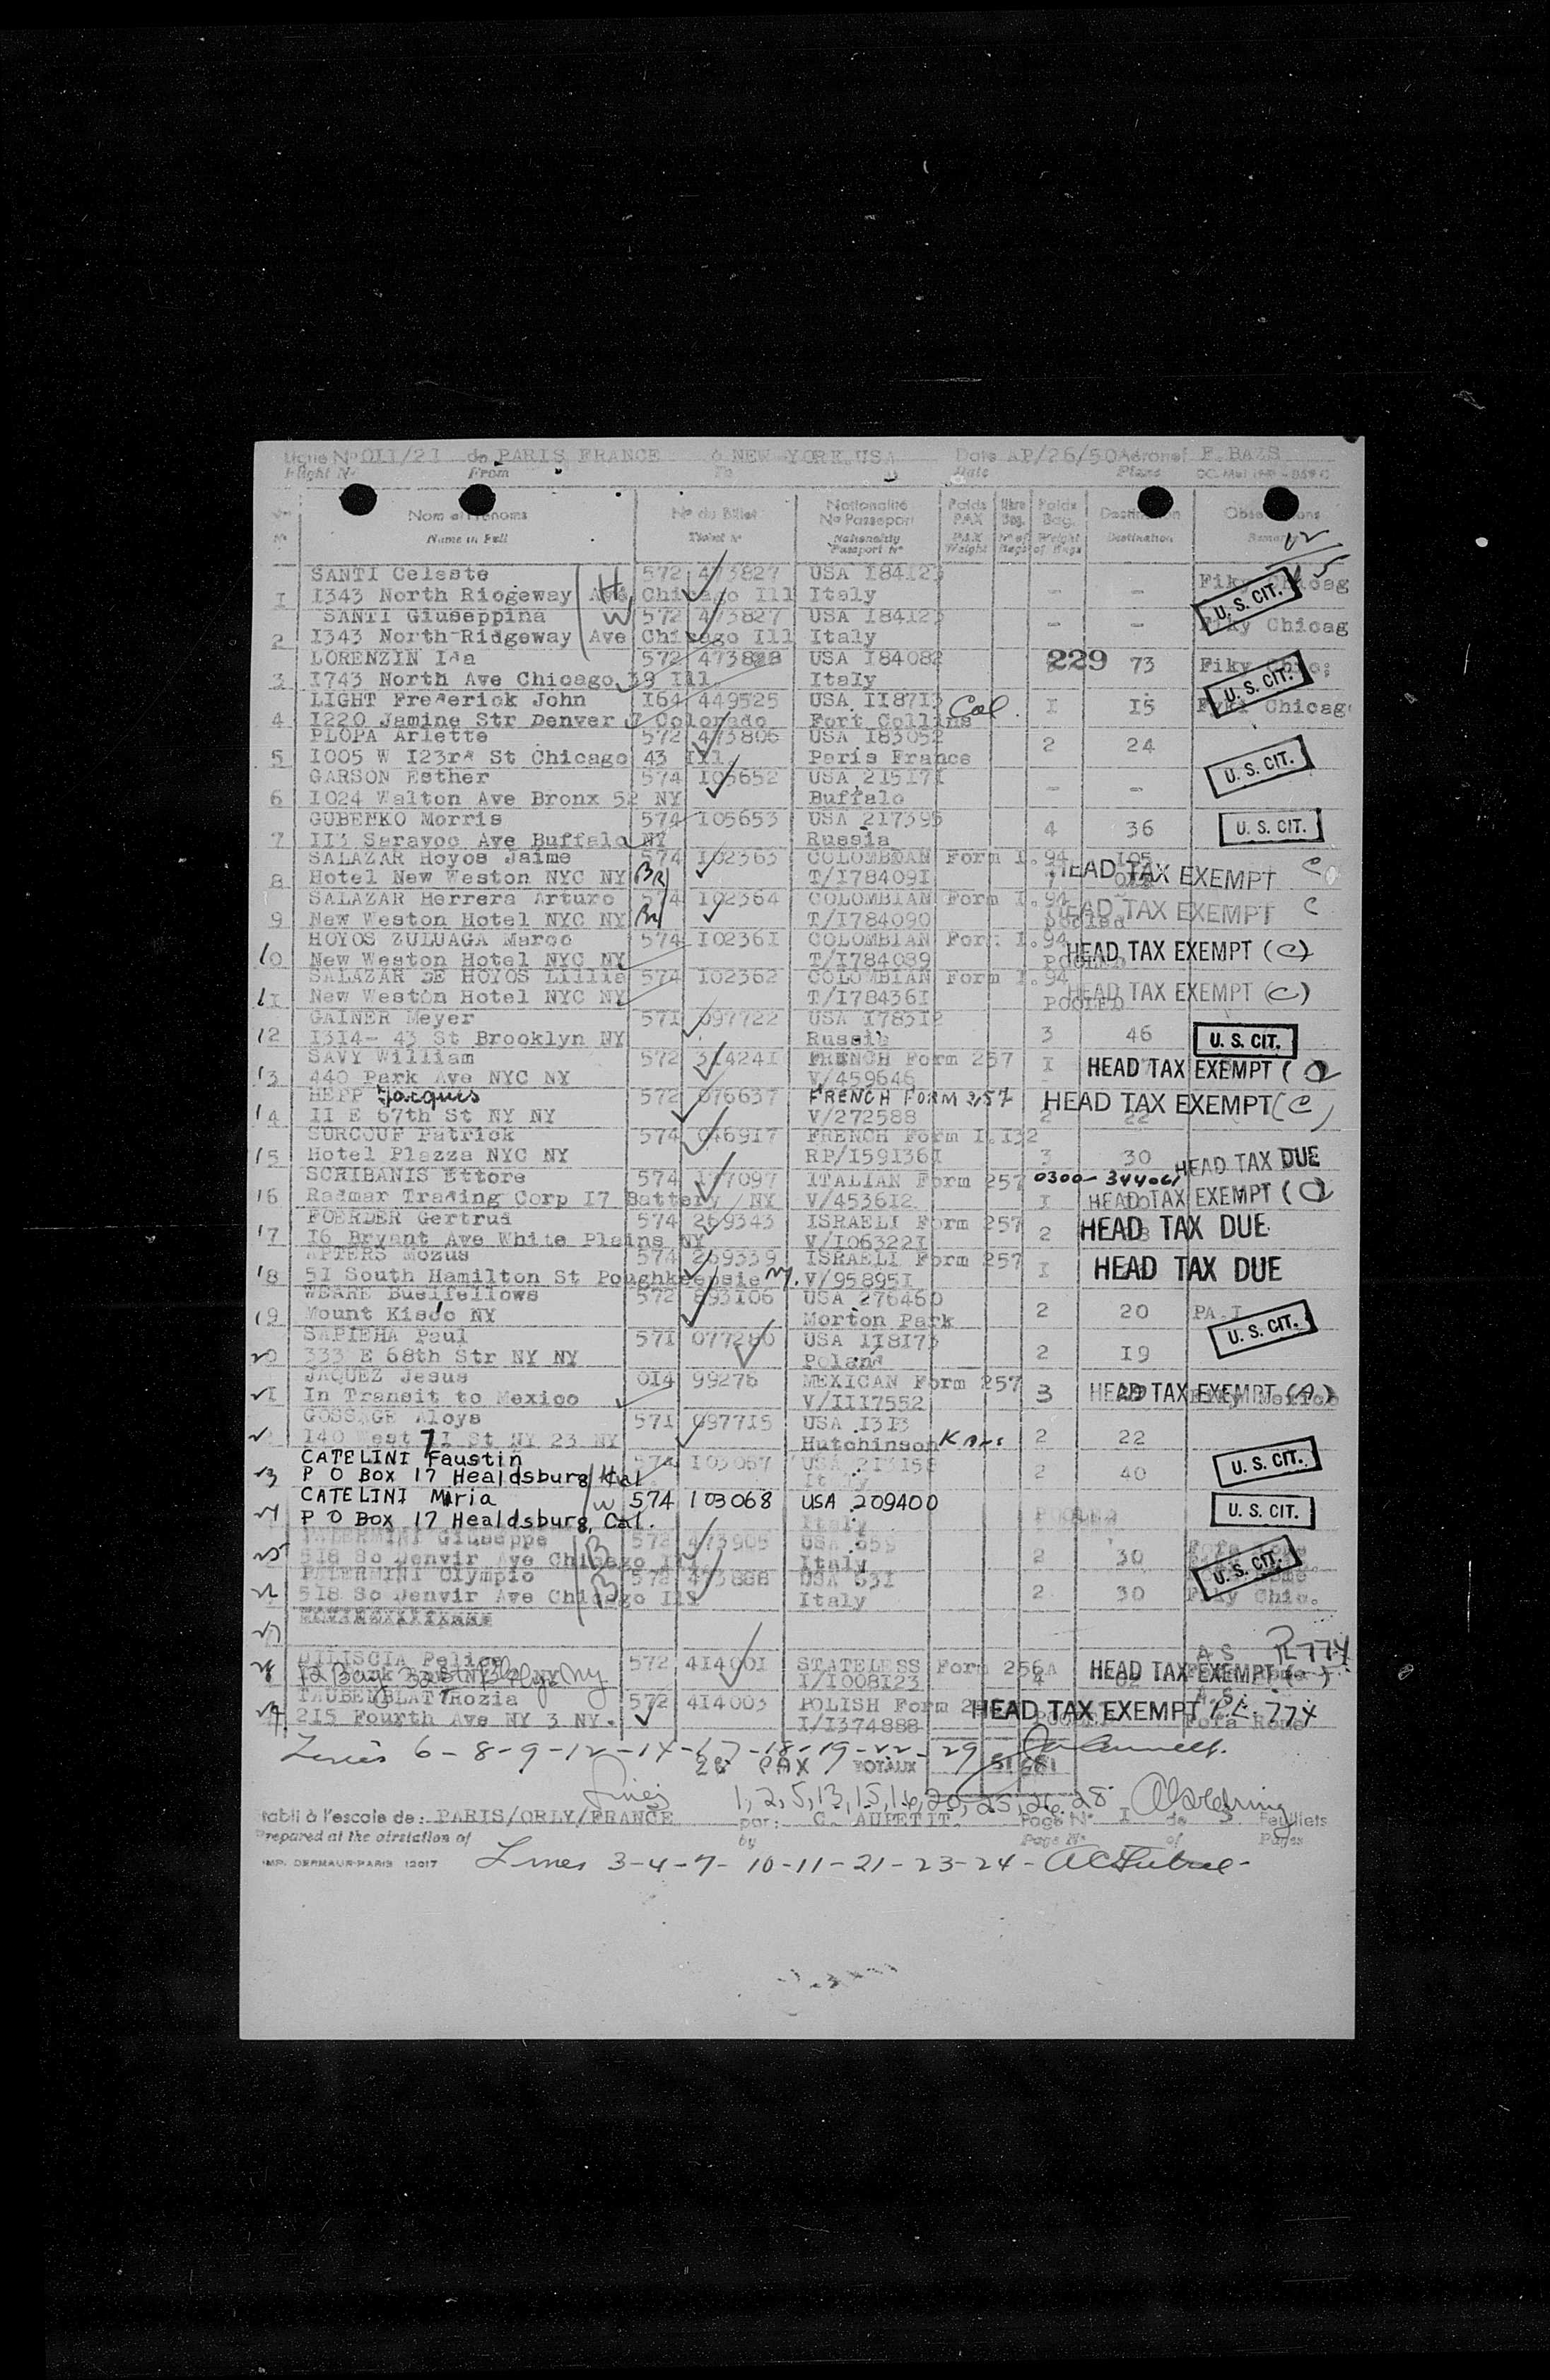 Ligne Nº 011/21 de PARIS FRANCE à NEW YORK.USA Date AP/26/50 Aéronef F.BAZS
Flight Nº From To Date Plane
Nom et Prénoms Nº du Billet Nationalité Nº Passeport Poids PAX Nbre Bag. Poids Bag. Destination Observations
Name in Full Ticket Nº Nationality Passport Nº PAX Weight Nº of Bags Weight of Bags Destination Remarks
SANTI Celeste H 572 473827 USA 184123
1 I343 North Ridgeway Ave Chicago Ill Italy - - U. S. CIT.
SANTI Giuseppina W 572 473827 USA 184123
2 I343 North Ridgeway Ave Chicago Ill Italy - - Fiky Chicag
LORENZIN Ida 572 473828 USA 184082 229 73 Fiky
3 I743 North Ave Chicago 39 Ill. Italy U. S. CIT.
LIGHT Frederick John I64 449525 USA II8713 Col. I I5 Chicag
4 I220 Jamine Str Denver 7 Colorado Fort Collins
PLOPA Arlette 572 473806 USA 183052 2 24
5 I005 W I23rd St Chicago 43 Ill Paris France U. S. CIT.
GARSON Esther 574 105652 USA 215171
6 I024 Walton Ave Bronx 52 NY Buffalo - -
GUBENKO Morris 574 105653 USA 217395 4 36 U. S. CIT.
7 II3 Saravoc Ave Buffalo NY Russia
SALAZAR Hoyos Jaime 574 102363 COLOMBIAN Form I.94 105
8 Hotel New Weston NYC NY BR T/I78409I HEAD TAX EXEMPT C
SALAZAR Herrera Arturo 574 102364 COLOMBIAN Form I.94
9 New Weston Hotel NYC NY BR T/I784090 pooled HEAD TAX EXEMPT C
HOYOS ZULUAGA Marco 574 I0236I COLOMBIAN Form I.94
10 New Weston Hotel NYC NY T/I784089 POOLED HEAD TAX EXEMPT (C)
SALAZAR DE HOYOS Lillia 574 I02362 COLOMBIAN Form I.94
11 New Weston Hotel NYC NY T/I78436I POOLED HEAD TAX EXEMPT (C)
GAINER Meyer 571 097722 USA I78512 3 46 U. S. CIT.
12 I3I4- 43 St Brooklyn NY Russia
SAVY William 572 31424I FRENCH Form 257 I HEAD TAX EXEMPT (
13 440 Park Ave NYC NY V/459646
HEPP Jacques 572 076637 FRENCH FORM 257 HEAD TAX EXEMPT (C)
14 II E 67th St NY NY V/272588 2 22
SURCOUF Patrick 574 046917 FRENCH Form I.I32
15 Hotel Plazza NYC NY RP/I59I36I 3 30 HEAD TAX DUE
SCRIBANIS Ettore 574 177097 ITALIAN Form 257 0300-344061
16 Radmar Trading Corp I7 Battery NY V/453612 I HEAD TAX EXEMPT (
FOERDER Gertrud 574 269343 ISRAELI Form 257 2 HEAD TAX DUE
17 I6 Bryant Ave White Plains NY V/I06322I
Mozus 574 269339 ISRAELI Form 257 I HEAD TAX DUE
18 5I South Hamilton St Poughkeepsie NY. V/95895I
572 893106 USA 276460 2 20 PA.I
19 Mount Kisco NY Morton Park U. S. CIT.
SAPIEHA Paul 571 077280 USA II8I73
20 333 E 68th Str NY NY Poland 2 I9
JAQUEZ Jesus 0I4 99276 MEXICAN Form 257
21 In Transit to Mexico V/III7552 3 HEAD TAX EXEMPT (A)
GOSSAGE Aloys 571 097715 USA I3I3
I40 West 71 St NY 23 NY Hutchinson Kans 2 22
CATELINI Faustin 574 103067 USA 213158 U. S. CIT.
23 P O Box 17 Healdsburg Cal Italy 2 40
CATELINI Maria W 574 103068 USA 209400 POOLED U. S. CIT.
24 P O Box 17 Healdsburg, Cal. Italy
PALERMINI Giuseppe B 572 473905 USA 659
25 518 So Denvir Ave Chicago Ill Italy 2 30 U. S. CIT.
PALERMINI Olympio B 572 473888 USA 631
26 518 So Denvir Ave Chicago Ill Italy 2 30 Fiky Chic.
27
Felice 572 414001 STATELESS Form 256A A S
28 I/I008I23 4 HEAD TAX EXEMPT
TAUBENBLAT Rozia 572 414003 POLISH Form
29 2I5 Fourth Ave NY 3 NY. I/I374888 HEAD TAX EXEMPT 774 Rome
Lines 6-8-9-12-14-17-18-19-22-29
28 PAX TOTAUX
Lines 1,2,5,13,15,16,20,25,26,28
Etabli à l'escale de: PARIS/ORLY/FRANCE par: C. AUPETIT. Page Nº I de 3 Feuillets
Prepared at the airstation of by Page Nº of Pages
IMP. DERMAUR-PARIS 12017 Lines 3-4-7-10-11-21-23-24-